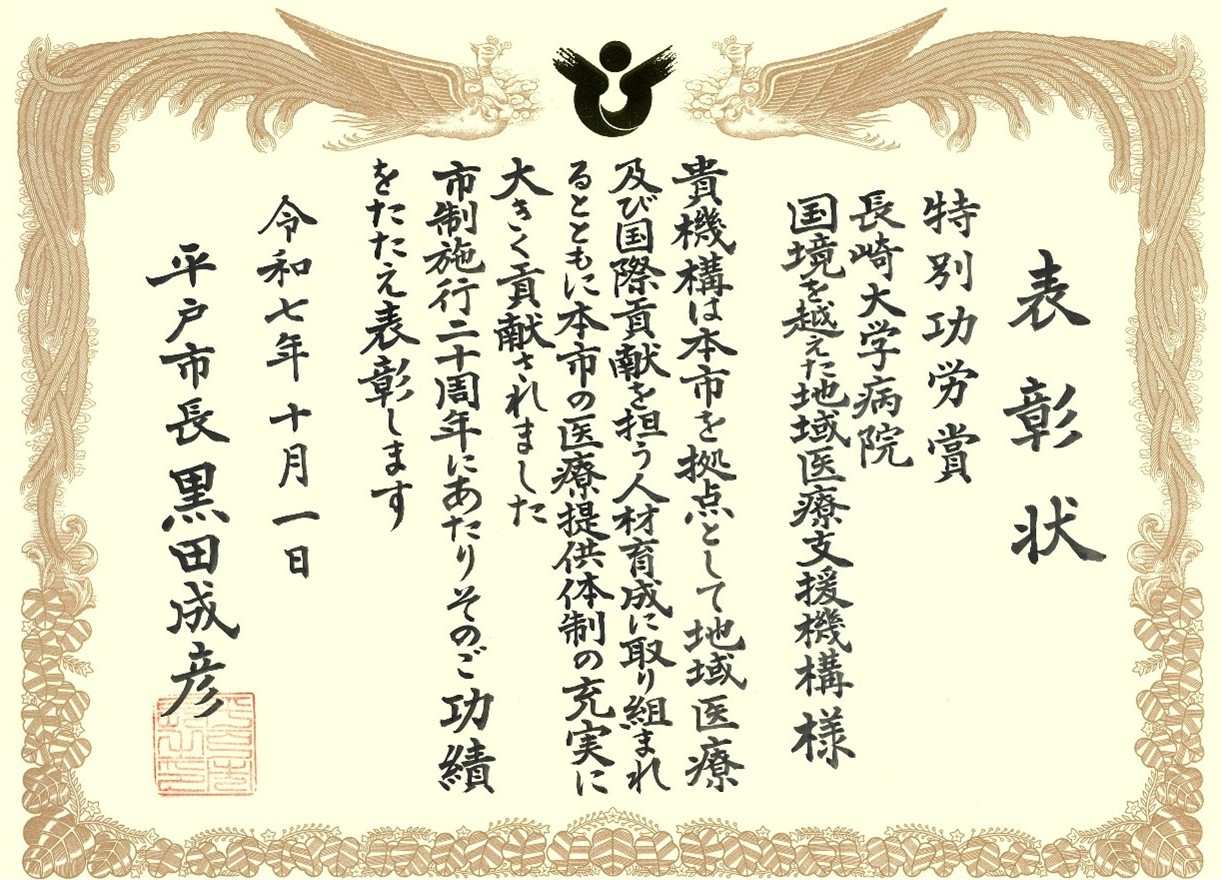 表彰状
特別功労賞
長崎大学病院
国境を越えた地域医療支援機構様
貴機構は本市を拠点として地域医療
及び国際貢献を担う人材育成に取り組まれ
るとともに本市の医療提供体制の充実に
大きく貢献されました
市制施行二十周年にあたりそのご功績
をたたえ表彰します
令和七年十月一日
平戸市長黒田成彦